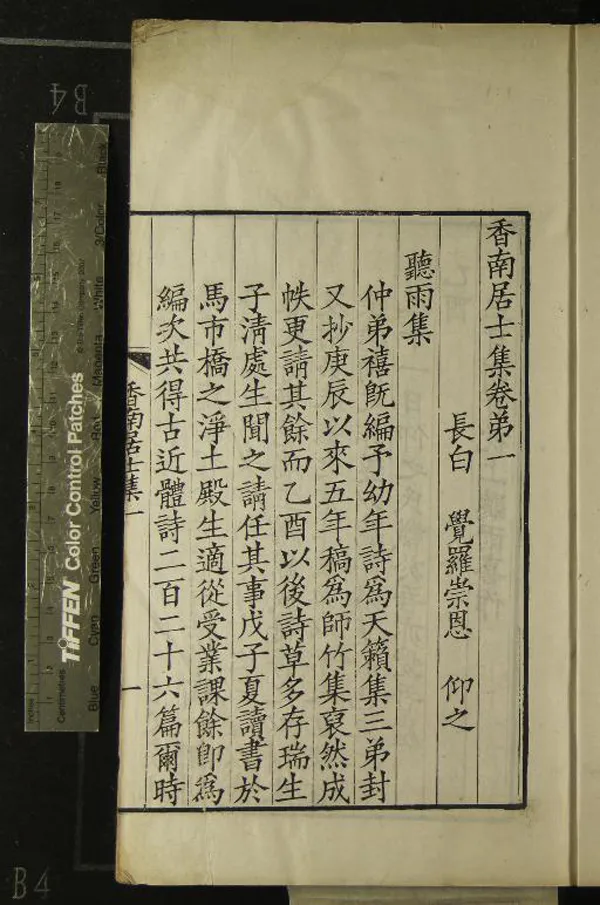 香南居士集卷弟一
長白 覺羅崇恩 仰之
聽雨集
仲弟禧旣編予幼年詩爲天籟集三弟封
又抄庚辰以來五年稿爲師竹集裒然成
帙更請其餘而乙酉以後詩草多存瑞生
子清處生聞之請任其事戊子夏讀書於
馬市橋之淨土殿生適從受業課餘卽爲
編次共得古近體詩二百二十六篇爾時
香南居士集一
一
B4
TIFFEN Color Control Patches
Blue Cyan Green Yellow Red Magenta White 3/Color Black
Inches
Centimetres
B4